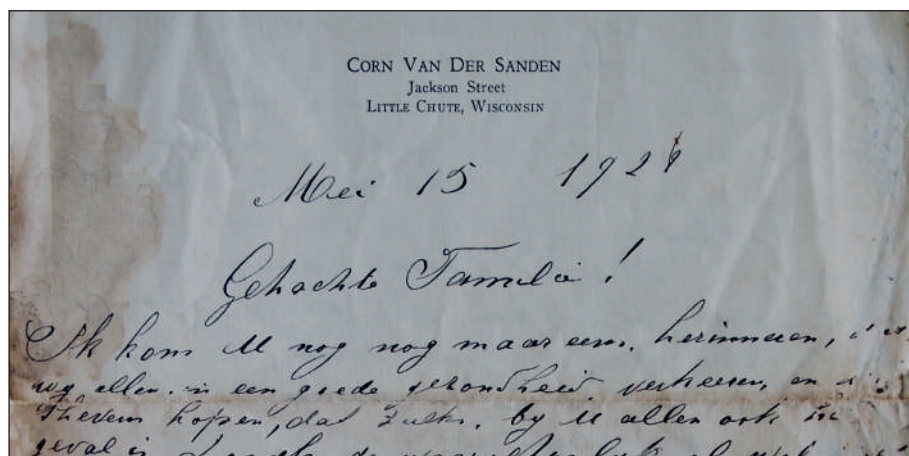 CORN VAN DER SANDEN
Jackson Street
LITTLE CHUTE, WISCONSIN
Mei 15 192
Gehachte Famielie!
Ik kom U nog nog maar eens. herinneren,
wy allen. in een goede gezondheid verkeeren, en
Thevens hopen, dat zulks. by U allen ook
geval is